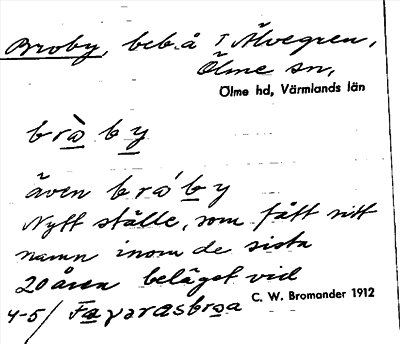 Broby, beb. å T Älvegren,
Ölme sn,
Ölme hd, Värmlands län
bròby
även bróby
Nytt ställe, som fått sitt
namn inom de sista
20 åren beläget vid
4-5/ Fagerasbroa C. W. Bromander 1912